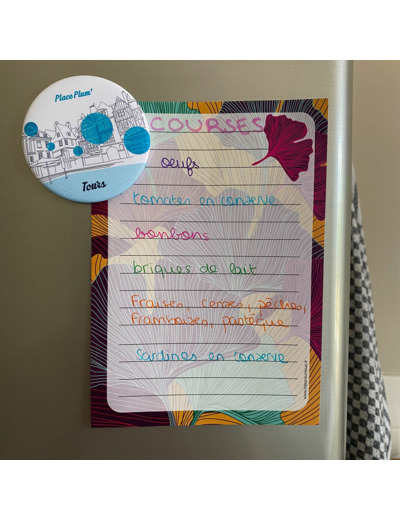 Place Plum'
Tours
COURSES
oeufs
tomates en conserve
bonbons
briques de lait
Fraises, cerises, pêches,
Framboises, pastèque
Sardines en conserve